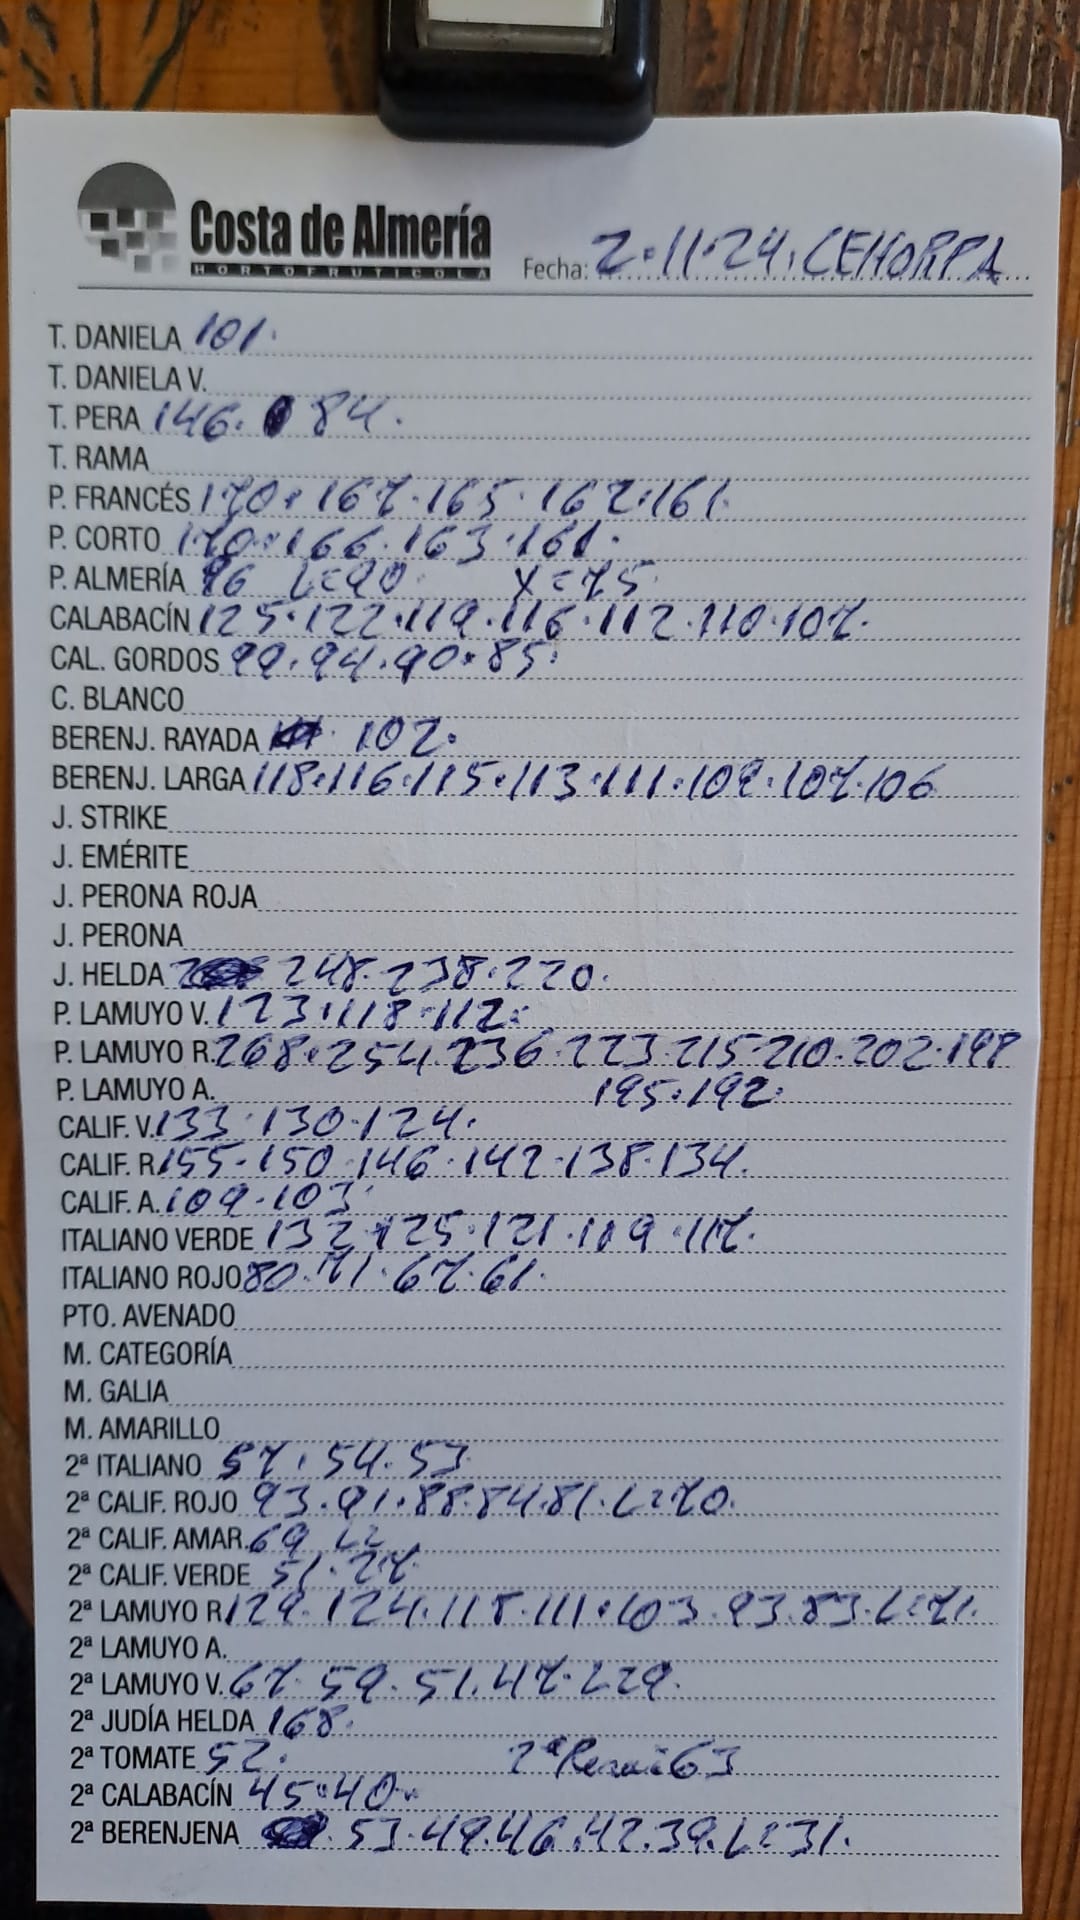 Costa de Almería
HORTOFRUTICOLA
Fecha: 2·11·24. CEHORPA
T. DANIELA 101.
T. DANIELA V.
T. PERA 146. 84.
T. RAMA
P. FRANCÉS 170. 167.165. 162.161.
P. CORTO 170.166.163.161.
P. ALMERÍA 96 L=90 X=75
CALABACÍN 125.122.119.116.112.110.107.
CAL. GORDOS 99.94.90.85.
C. BLANCO
BERENJ. RAYADA 102.
BERENJ. LARGA 118.116.115.113.111.109.107.106
J. STRIKE
J. EMÉRITE
J. PERONA ROJA
J. PERONA
J. HELDA 248.238.220.
P. LAMUYO V. 123.118.112.
P. LAMUYO R. 268.254.236.223.215.210.202.198
P. LAMUYO A. 195.192.
CALIF. V. 133.130.124.
CALIF. R. 155.150.146.142.138.134.
CALIF. A. 109.103.
ITALIANO VERDE 132.125.121.119.117.
ITALIANO ROJO 80.71.67.61.
PTO. AVENADO
M. CATEGORÍA
M. GALIA
M. AMARILLO
2ª ITALIANO 57.54.53
2ª CALIF. ROJO 93.91.88.84.81.L=70.
2ª CALIF. AMAR. 69
2ª CALIF. VERDE 51.27.
2ª LAMUYO R. 129.124.118.111.103.93.83.L=71.
2ª LAMUYO A.
2ª LAMUYO V. 67.59.51.47.L=29.
2ª JUDÍA HELDA 168.
2ª TOMATE 52. 2ª 63
2ª CALABACÍN 45.40.
2ª BERENJENA 53.49.46.42.39.L=31.